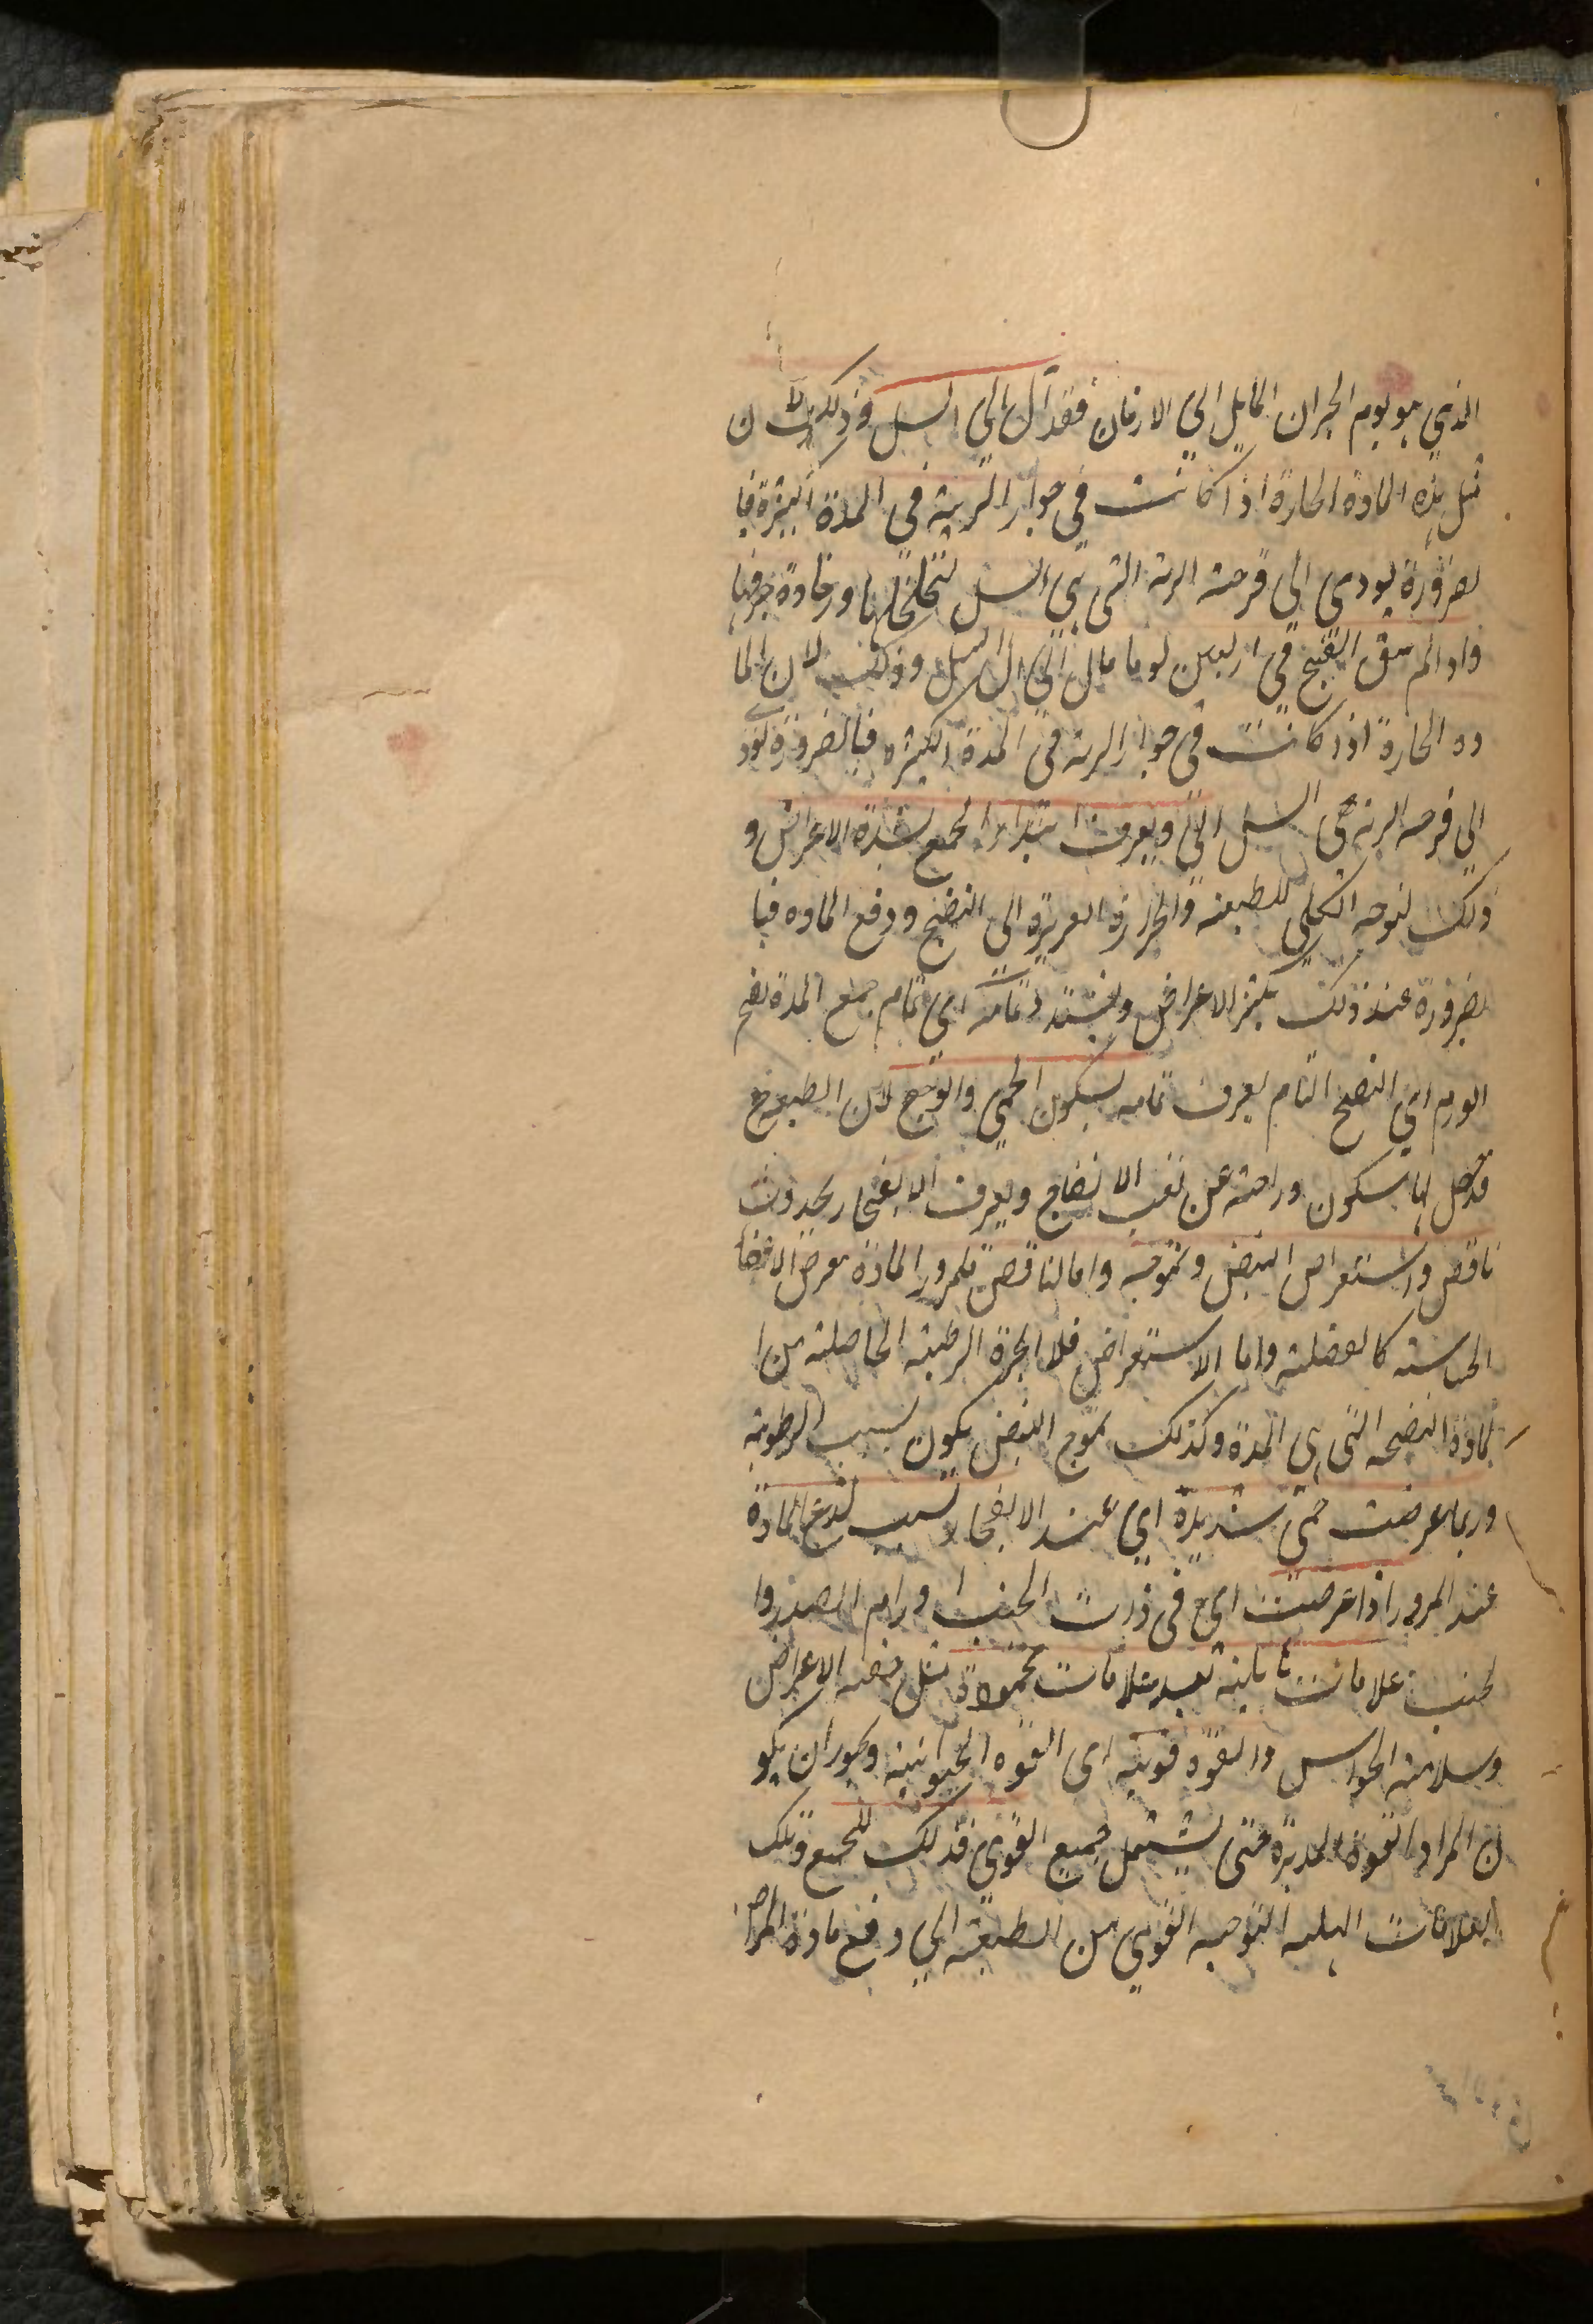 الذي هو يوم البحران المايل الي الازمان فقد آل الي السل وذلك لان
مثل هذه المادة الحارة اذا كانت في جوار الرية في المدة الكثيرة فبا
لضرورة يودي الي قرحة الرية التي هي السل لتخلخلها ورخاوة جرمها
واذا لم ينق القيح في اربعين يوما مال الي السل وذلك لان الما
دة الحارة اذا كانت في جوار الرية في المدة الكثيرة فبالضرورة يودي
الي قرحة الرية هي السل الي ويعرف ابتداء الجمع لشدة الاعراض و
ذلك لتوجه الكلي للطبيعة والحرارة الغريزة الي النضج ودفع المادة فبا
لضرورة عند ذلك يكثر الاعراض ويشتد وتمامه اي تمام جمع المدة نضج
الورم اي النضج التام يعرف تمامه بسكون الحمي والوجع لان الطبيعة ح
قد حصل لها سكون وراحة عن تعب الانضاج ويعرف الانفجار بحدوث
ناقض واستعراض النبض وتموجه واما الناقض فلمرور المادة بعرض الاعضا
الحساسة كالعضلة واما الاستعراض فللابخرة الرطبة الحاصلة من ا
لمادة النضجة التي هي المدة وكذلك تموج النبض يكون بسبب الرطوبة
وربما عرضت حمي شديدة اي عند الانفجار بسبب لذع المادة
عند المرور اذا عرضت اي في ذات الجنب اورام الصدر وا
لجنب علامات هايلة بعد علامات محمودة مثل خفة الاعراض
وسلامة الحواس والقوة قوية اي القوة الحيوانية ويجوز ان يكو
ن المراد القوة المدبرة حتي يشتمل جميع القوي فذلك للجمع وتلك
العلامات الهايلة التوجه القوي من الطبيعة الي دفع مادة المرض